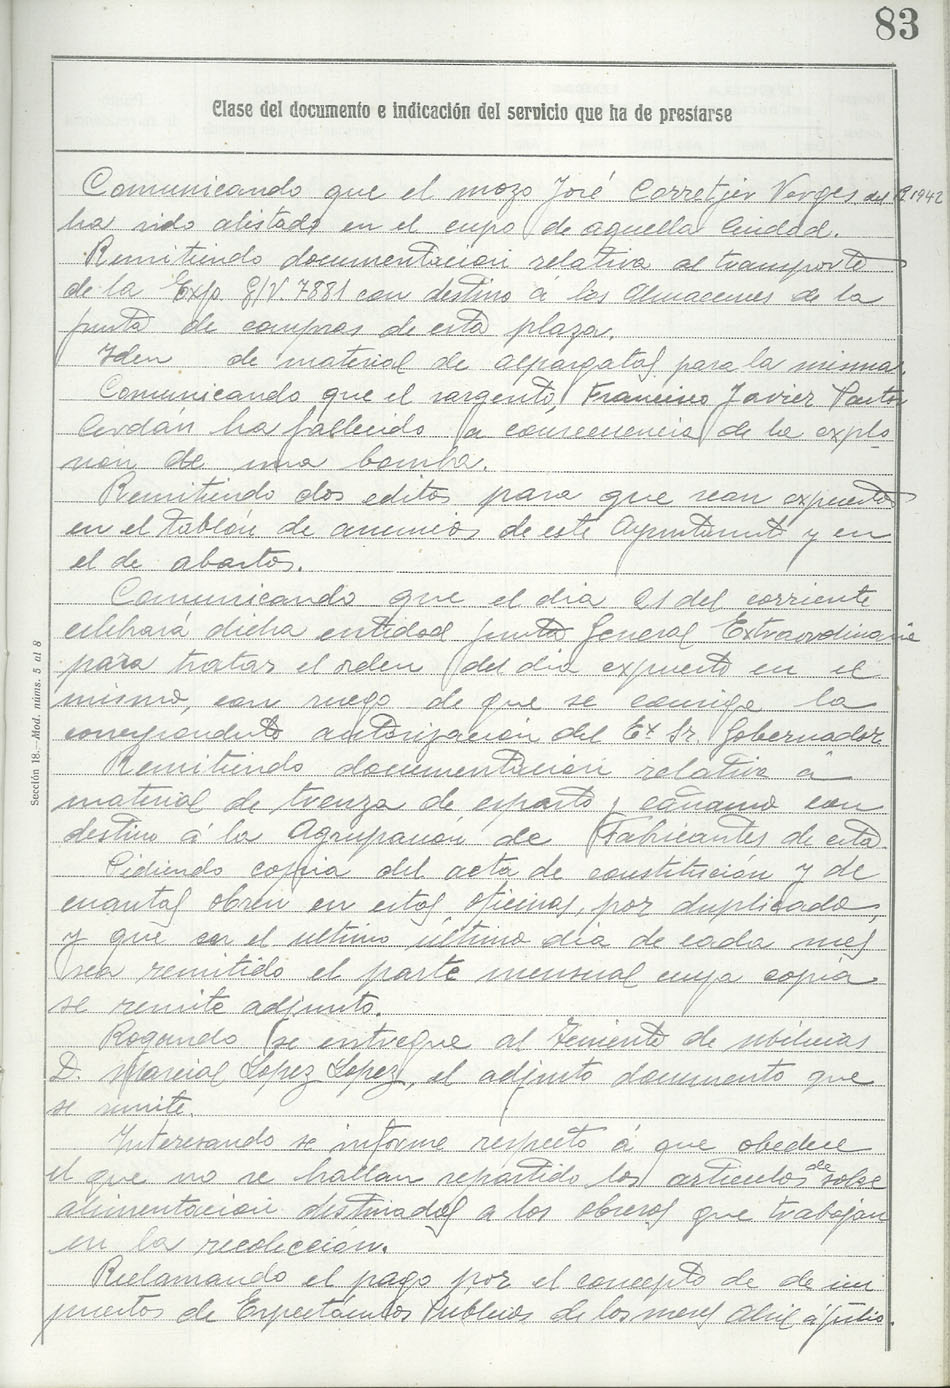 83
Clase del documento e indicación del servicio que ha de prestarse
Comunicando que el mozo José Corretjer Verges del R 1942
ha sido alistado en el cupo de aquella Ciudad.
Remitiendo documentación relativa al transporte
de la Exp. G/V. 7881 con destino á los Almacenes de la
junta de compras de esta plaza.
Iden de material de alpargatas para la misma.
Comunicando que el sargento, Francisco Javier Pastor
Cerdán ha fallecido a consecuencia de la explo
sion de una bomba.
Remitiendo dos editos para que sean expuestos
en el tablón de anuncios de este Ayuntamt y en
el de abastos.
Comunicando que el dia 21 del corriente
celebrará dicha entidad junta General Extraordinaria
para tratar el orden del dia expuesto en el
mismo, con ruego de que se consiga la
correspondente autorización del Ex. Sr. Gobernador
Remitiendo documentación relativa á
material de trenza de esparto y cáñamo con
destino á la Agrupación de Fabricantes de esta.
Pidiendo copia del acta de constitución y de
cuantas obren en estas oficinas, por duplicado,
y que en el ultimo último dia de cada mes
sea remitido el parte mensual cuya copia
se remite adjunto.
Rogando se entregue al Teniente de milicias
D. Marcial López López, el adjunto documento que
se remite.
Interesando se informe respecto á que obedece
el que no se hallan repartido los articulos de sobre
alimentación destinados a los obreros que trabajan
en la recolección.
Reclamando el pago por el concepto de de im
puestos de Espectáculos Publicos de los mes Abril á Julio.
Sección 18.—Mod. núms. 5 al 8